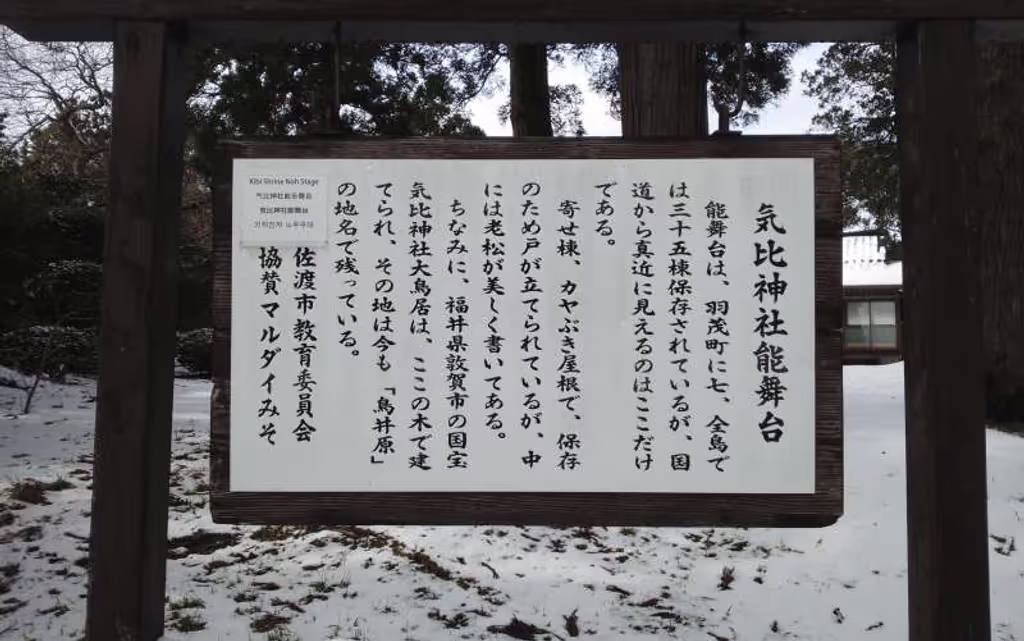 気比神社能舞台
能舞台は、羽茂町に七、全島で
は三十五棟保存されているが、国
道から真近に見えるのはここだけ
である。
寄せ棟、カヤぶき屋根で、保存
のため戸が立てられているが、中
には老松が美しく書いてある。
ちなみに、福井県敦賀市の国宝
気比神社大鳥居は、ここの木で建
てられ、その地は今も「鳥井原」
の地名で残っている。
佐渡市教育委員会
協賛マルダイみそ
Kibi Shrine Noh Stage
気比神社能舞台